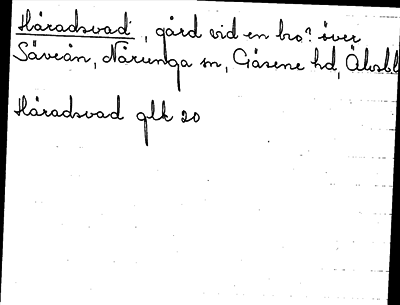 Häradsvad, gård vid en bro? över
Säveån, Nårunga sn, Gäsene hd, Älvsbl
Häradsvad glk 20